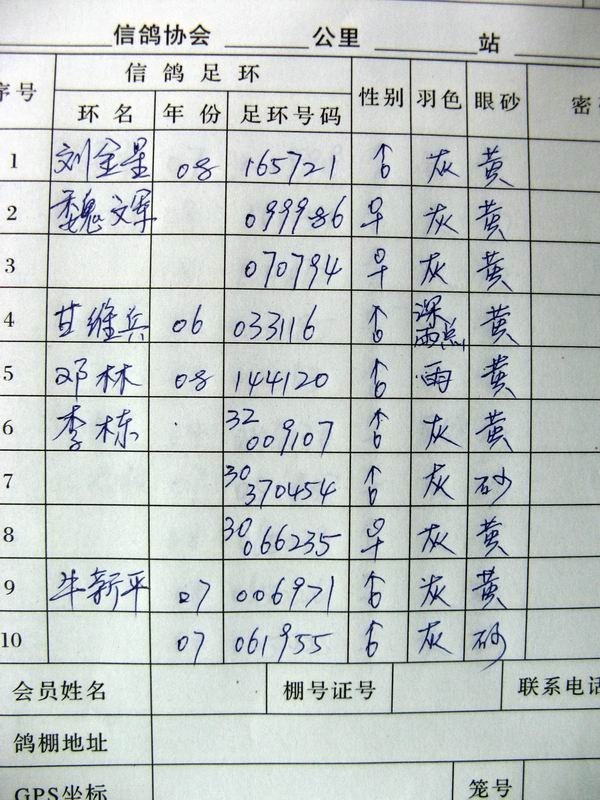 信鸽协会 公里 站
序号 信鸽足环 性别 羽色 眼砂 密
环名 年份 足环号码
1 刘金星 08 165721 ♂ 灰 黄
2 魏文军 099986 ♀ 灰 黄
3 070794 ♀ 灰 黄
4 甘维兵 06 033116 ♂ 深雨点 黄
5 邓林 08 144120 ♂ 雨 黄
6 李栋 32 009107 ♂ 灰 黄
7 30 370454 ♂ 灰 砂
8 30 066235 ♀ 灰 黄
9 牛新平 07 006971 ♂ 灰 黄
10 07 061955 ♂ 灰 砂
会员姓名 棚号证号 联系电话
鸽棚地址
GPS坐标 笼号